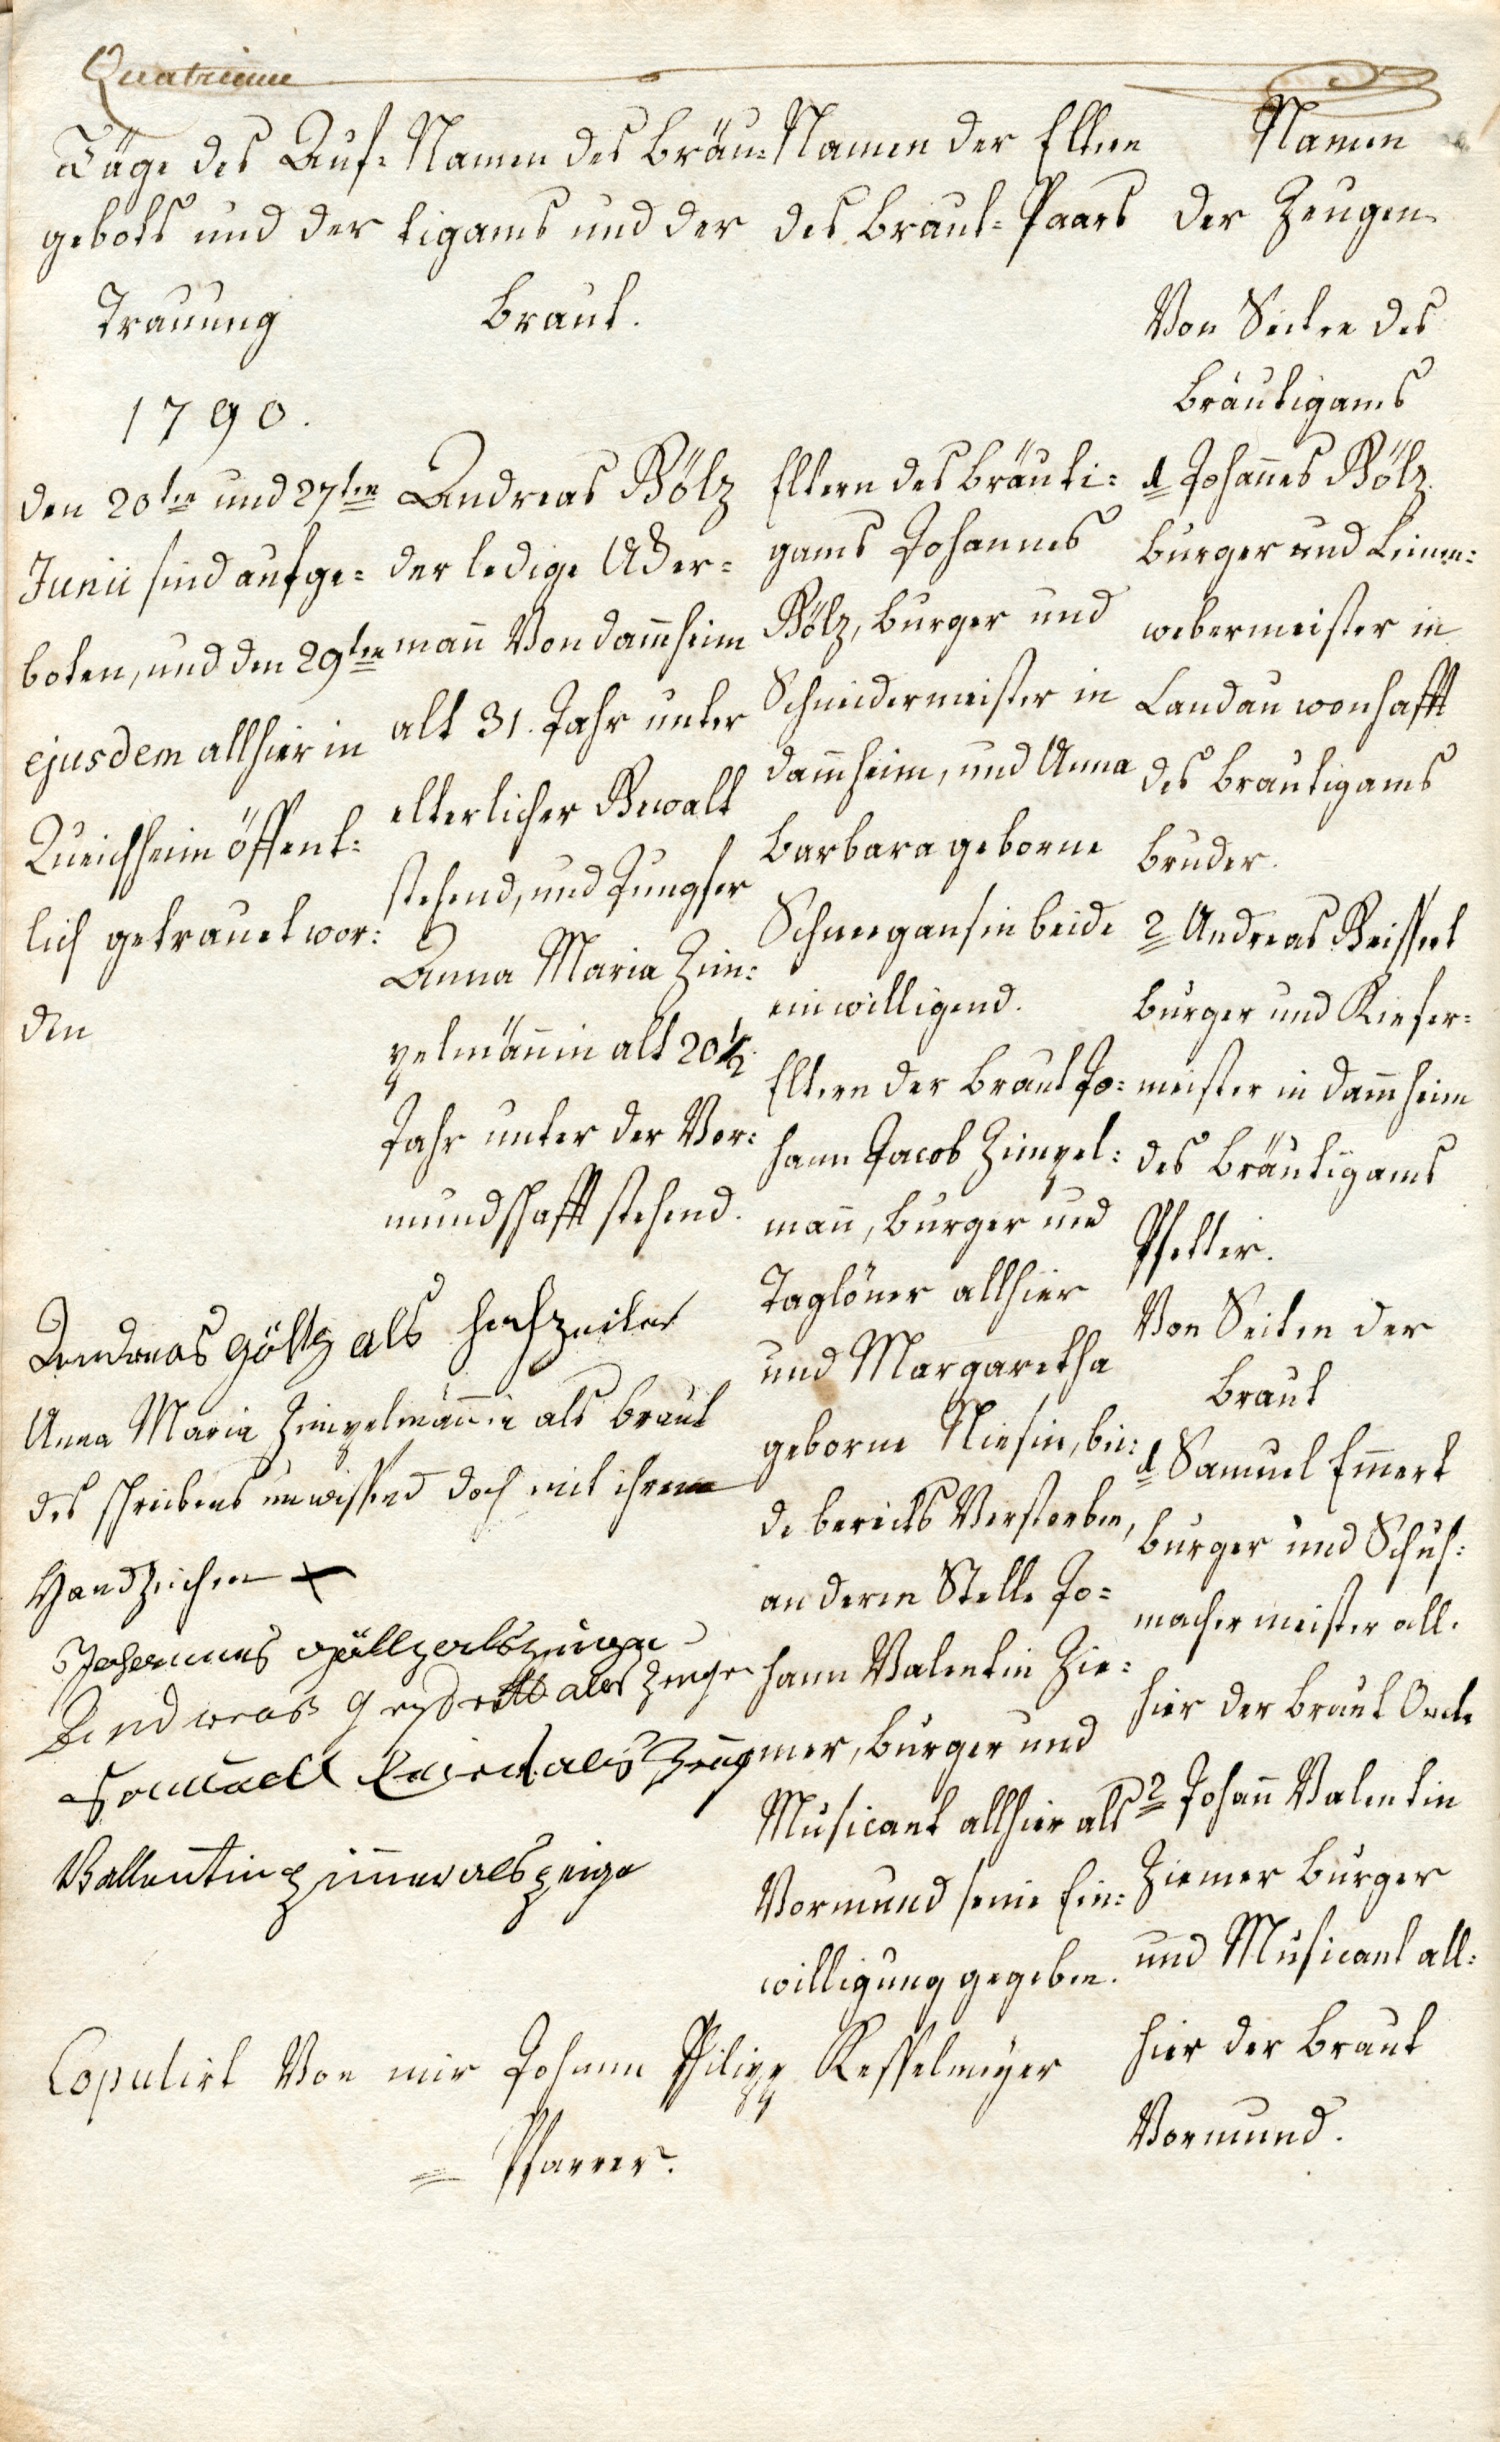 Quatrieme
Täge des Auf-
gebots und der
Trauung
1790.
den 20ten und 27ten
Junii sind aufge=
boten, und den 29ten
ejusdem allhier in
Queichheim öffent=
lich getrauet wor=
den
Namen des Bräu=
tigams und der
Braut.
Andreas Gölz
der ledige Acker=
mañ Von Dam̃heim
alt 31. Jahr unter
elterlicher Gewalt
stehend, und Jungfer
Anna Maria Zim=
pelmän̄in alt 20 1/2.
Jahr unter der Vor=
mundschafft stehend.
Namen der Eltern
des Braut=Paars
Eltern des Bräuti=
gams Johannes
Gölz, Burger und
Schneidermeister in
Dam̃heim, und Anna
Barbara geborne
Schneegansin beide
einwilligend.
Eltern der Braut Jo=
hann Jacob Zimpel=
mañ, Burger und
Taglöner allhier
und Margaretha
geborne Niesin, bei=
de bereits Verstorben,
an deren Stelle Jo=
hann Valentin Zie=
mer, Burger und
Musicant allhier als
Vormund seine Ein=
willigung gegeben.
Namen
der Zeugen
Von Seiten des
Bräutigams
1 Johan̄es Gölz
Burger und Leinen=
webermeister in
Landau wonhafft
des Bräutigams
Bruder.
2 Andreas Geissert
Burger und Kiefer=
meister in Dam̃heim
des Bräutigams
Pfetter.
Von Seiten der
Braut
1 Samuel Em̃ert
Burger und Schuh=
macher meister all=
hier der Braut Oncle
2 Johañ Valentin
Ziemer Burger
und Musicant all=
hier der Braut
Vormund.
Andreas Göltz als Hochzeiter
Anna Maria Zimpelmän̄in als Braut
des schreibens unwissend doch mit ihrem
Handzeichen +
Johannes Göllz als Zeuge
Andreas als Zeuge
Samuell als Zeug
Vallentin Zimmer als Zeige
Copulirt Von mir Johann Philipp Kesselmeyer
Pfarrer.